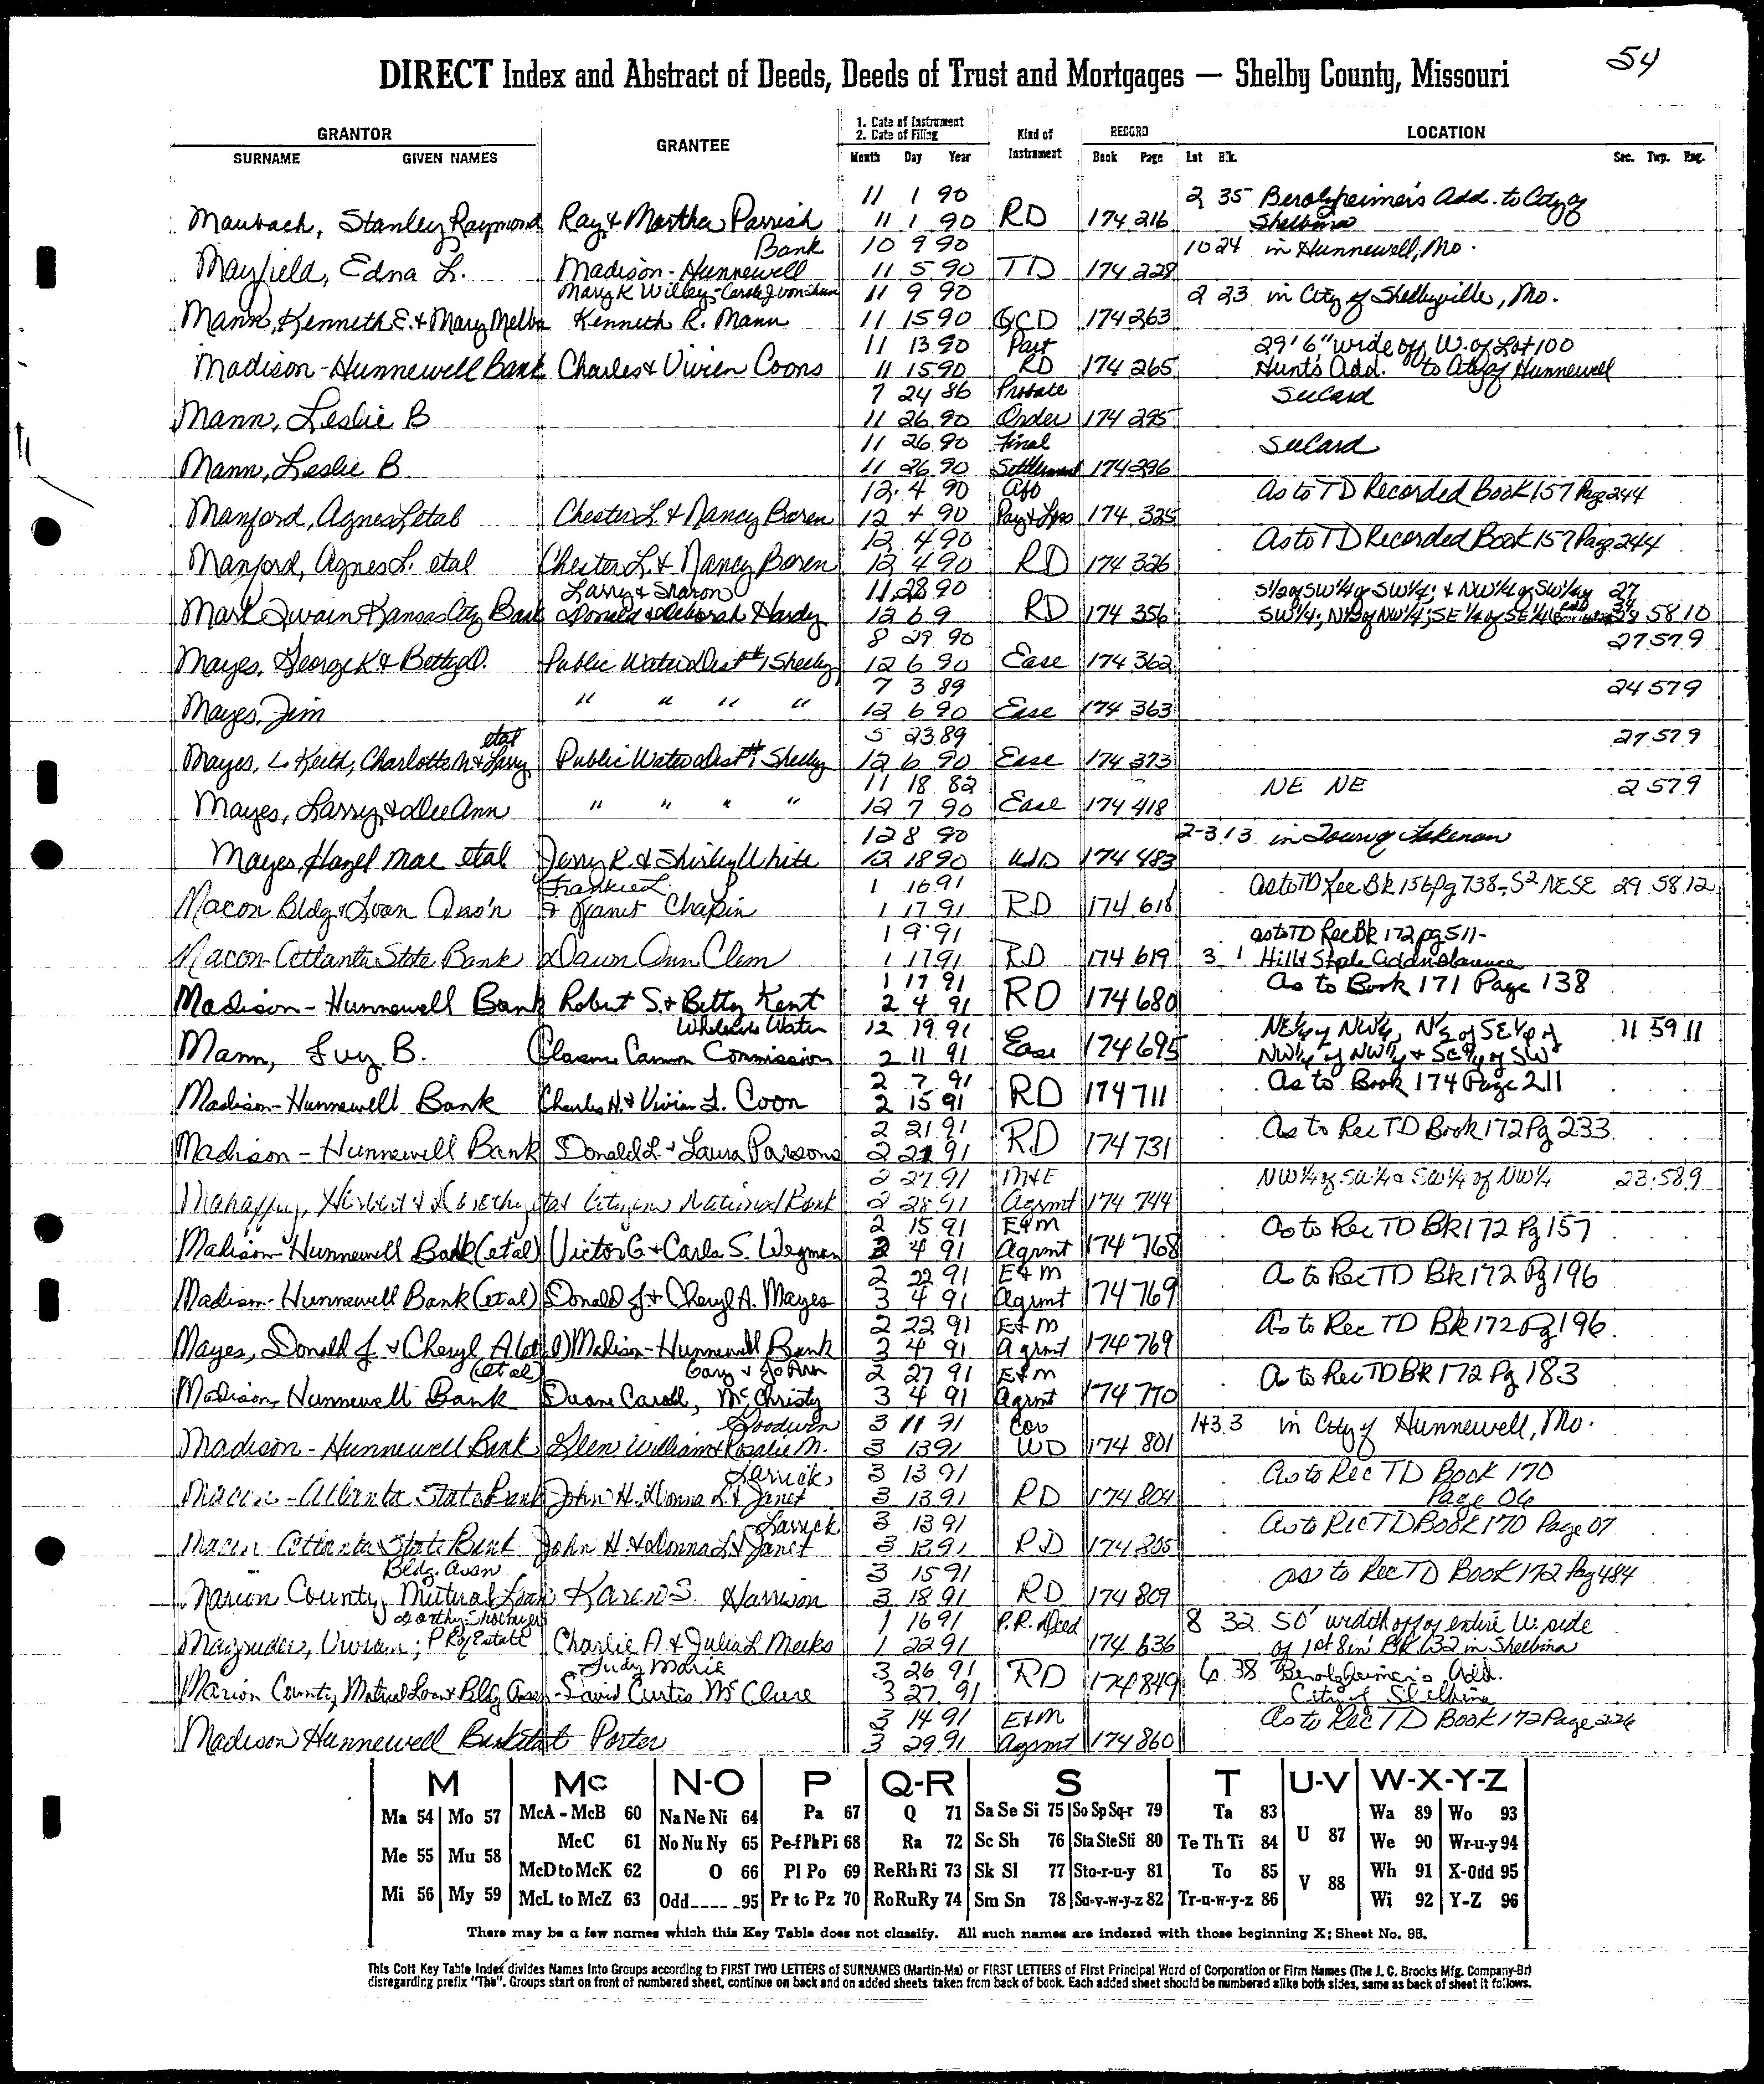 54
DIRECT Index and Abstract of Deeds, Deeds of Trust and Mortgages — Shelby County, Missouri
GRANTOR
SURNAME GIVEN NAMES
GRANTEE
1. Date of Instrument
2. Date of Filing
Month Day Year
Kind of Instrument
RECORD
Book Page
LOCATION
Lot Blk. Sec. Twp. Rng.
11 1 90 2 35 Berolzheimer's Add. to City of
Maubach, Stanley Raymond Ray & Martha Parrish 11 1 90 RD 174 216 Shelbina
Bank 10 9 90 10 24 in Hunnewell, Mo.
Mayfield, Edna L. Madison-Hunnewell 11 5 90 TD 174 228
Mary K Willey- 11 9 90 2 23 in City of Shelbyville, Mo.
Mann, Kenneth E. & Mary Melba Kenneth R. Mann 11 15 90 QCD 174 263
11 13 90 Part 29' 6" wide off W. of Lot 100
Madison-Hunnewell Bank Charles & Vivien Coons 11 15 90 RD 174 265 Hunt's Add. to City of Hunnewell
7 24 86 Probate See Card
Mann, Leslie B 11 26 90 Order 174 295
11 26 90 Final See Card
Mann, Leslie B. 11 26 90 Settlement 174 296
12 4 90 As to TD Recorded Book 157 Page 244
Manford, Agnes L etal Chester L. & Nancy Boren 12 4 90 174 325
12 4 90 As to TD Recorded Book 157 Page 244
Manford, Agnes L. etal Chester L. & Nancy Boren 12 4 90 RD 174 326
Larry & Sharon 11 28 90 S½ of SW¼ of SW¼; & NW¼ of SW¼ of 27
Mark Twain Kansas City Bank Donald & Deborah Hardy 12 6 9 RD 174 356 SW¼; N½ of NW¼; SE¼ of SE¼ 28 58 10
8 29 90 27 57 9
Mayes, George K & Betty D. Public Water Dist #1 Shelby 12 6 90 Ease 174 362
7 3 89 24 57 9
Mayes, Jim " " " " 12 6 90 Ease 174 363
etal 5 23 89 27 57 9
Mayes, L Keith, Charlotte M & Larry Public Water Dist #1 Shelby 12 6 90 Ease 174 373
11 18 82 NE NE 2 57 9
Mayes, Larry & Dee Ann " " " " 12 7 90 Ease 174 418
12 8 90 2-3 13 in Town of Lakenan
Mayes, Hazel Mae etal Jerry R. & Shirley White 12 18 90 WD 174 483
Frankie L. 1 16 91 As to TD Rec Bk 156 Pg 738, S² NE SE 29 58 12
Macon Bldg & Loan Ass'n & Janet Chapin 1 17 91 RD 174 618
1 9 91 as to TD Rec Bk 172 pg 511-
Macon-Atlanta State Bank Dawn Ann Clem 1 17 91 RD 174 619 3 1
1 17 91 As to Book 171 Page 138
Madison-Hunnewell Bank Robert S. & Betty Kent 2 4 91 RD 174 680
Wholesale Water 12 19 91 NE¼ of NW¼, N½ of SE¼ of 11 59 11
Mann, Guy B. Clarence Cannon Commission 2 11 91 Ease 174 695 NW¼ of NW¼ & SE¼ of SW
2 7 91 As to Book 174 Page 211
Madison-Hunnewell Bank Charles H. & Vivian L. Coon 2 15 91 RD 174 711
2 21 91 As to Rec TD Book 172 Pg 233
Madison-Hunnewell Bank Donald L. & Laura Parsons 2 22 91 RD 174 731
2 27 91 M&E NW¼ of SW¼ & SW¼ of NW¼ 23 58 9
Mahaffey, Herbert & Dorothy etal Citizens National Bank 2 28 91 Agrmt 174 744
2 15 91 E&M As to Rec TD Bk 172 Pg 157
Madison-Hunnewell Bank (etal) Victor G & Carla S. Wegman 3 4 91 Agrmt 174 768
2 22 91 E&M As to Rec TD Bk 172 Pg 196
Madison-Hunnewell Bank (etal) Donald J. & Cheryl A. Mayes 3 4 91 Agrmt 174 769
2 22 91 E&M As to Rec TD Bk 172 Pg 196
Mayes, Donald J. & Cheryl A (etal) Madison-Hunnewell Bank 3 4 91 Agrmt 174 769
(etal) Gary & JoAnn 2 27 91 E&M As to Rec TD BK 172 Pg 183
Madison-Hunnewell Bank Duane Caroll, McChristy 3 4 91 Agrmt 174 770
Goodwin 3 11 91 Cor 1 43 3 in City of Hunnewell, Mo.
Madison-Hunnewell Bank Glen William & Rosalie M. 3 13 91 WD 174 801
Larrick 3 13 91 As to Rec TD Book 170
Macon-Atlanta State Bank John H. Donna L & Janet 3 13 91 RD 174 804 Page 06
Larrick 3 13 91 As to Rec TD Book 170 Page 07
Macon-Atlanta State Bank John H. & Donna L & Janet 3 13 91 RD 174 805
Bldg. Assn 3 15 91 as to Rec TD Book 172 Pg 484
Marion County Mutual Loan Karen S. Harrison 3 18 91 RD 174 809
1 16 91 P.R. Deed 8 32 50' width off of entire W. side
Magruder, Vivian; P R of Estate Charlie A & Julia L Meeks 1 22 91 174 636 of lot 8 in Blk 32 in Shelbina
Judy Marie 3 26 91 6 38 Berolzheimer's Add.
Marion County Mutual Loan & Bldg Assn- David Curtis McClure 3 27 91 RD 174 849 City of Shelbina
3 14 91 E&M As to Rec TD Book 172 Page 226
Madison Hunnewell Bank etal Porter 3 29 91 Agrmt 174 860
M Mc N-O P Q-R S T U-V W-X-Y-Z
Ma 54 Mo 57 McA - McB 60 Na Ne Ni 64 Pa 67 Q 71 Sa Se Si 75 So Sp Sq-r 79 Ta 83 U 87 Wa 89 Wo 93
Me 55 Mu 58 McC 61 No Nu Ny 65 Pe-f Ph Pi 68 Ra 72 Sc Sh 76 Sta Ste Sti 80 Te Th Ti 84 V 88 We 90 Wr-u-y 94
McD to McK 62 O 66 Pl Po 69 Re Rh Ri 73 Sk Sl 77 Sto-r-u-y 81 To 85 Wh 91 X-Odd 95
Mi 56 My 59 McL to McZ 63 Odd 95 Pr to Pz 70 Ro Ru Ry 74 Sm Sn 78 Su-v-w-y-z 82 Tr-u-w-y-z 86 Wi 92 Y-Z 96
There may be a few names which this Key Table does not classify. All such names are indexed with those beginning X; Sheet No. 95.
This Cott Key Table Index divides Names into Groups according to FIRST TWO LETTERS of SURNAMES (Martin-Ma) or FIRST LETTERS of First Principal Word of Corporation or Firm Names (The J. C. Brooks Mfg. Company-Br)
disregarding prefix "The". Groups start on front of numbered sheet, continue on back and on added sheets taken from back of book. Each added sheet should be numbered alike both sides, same as back of sheet it follows.